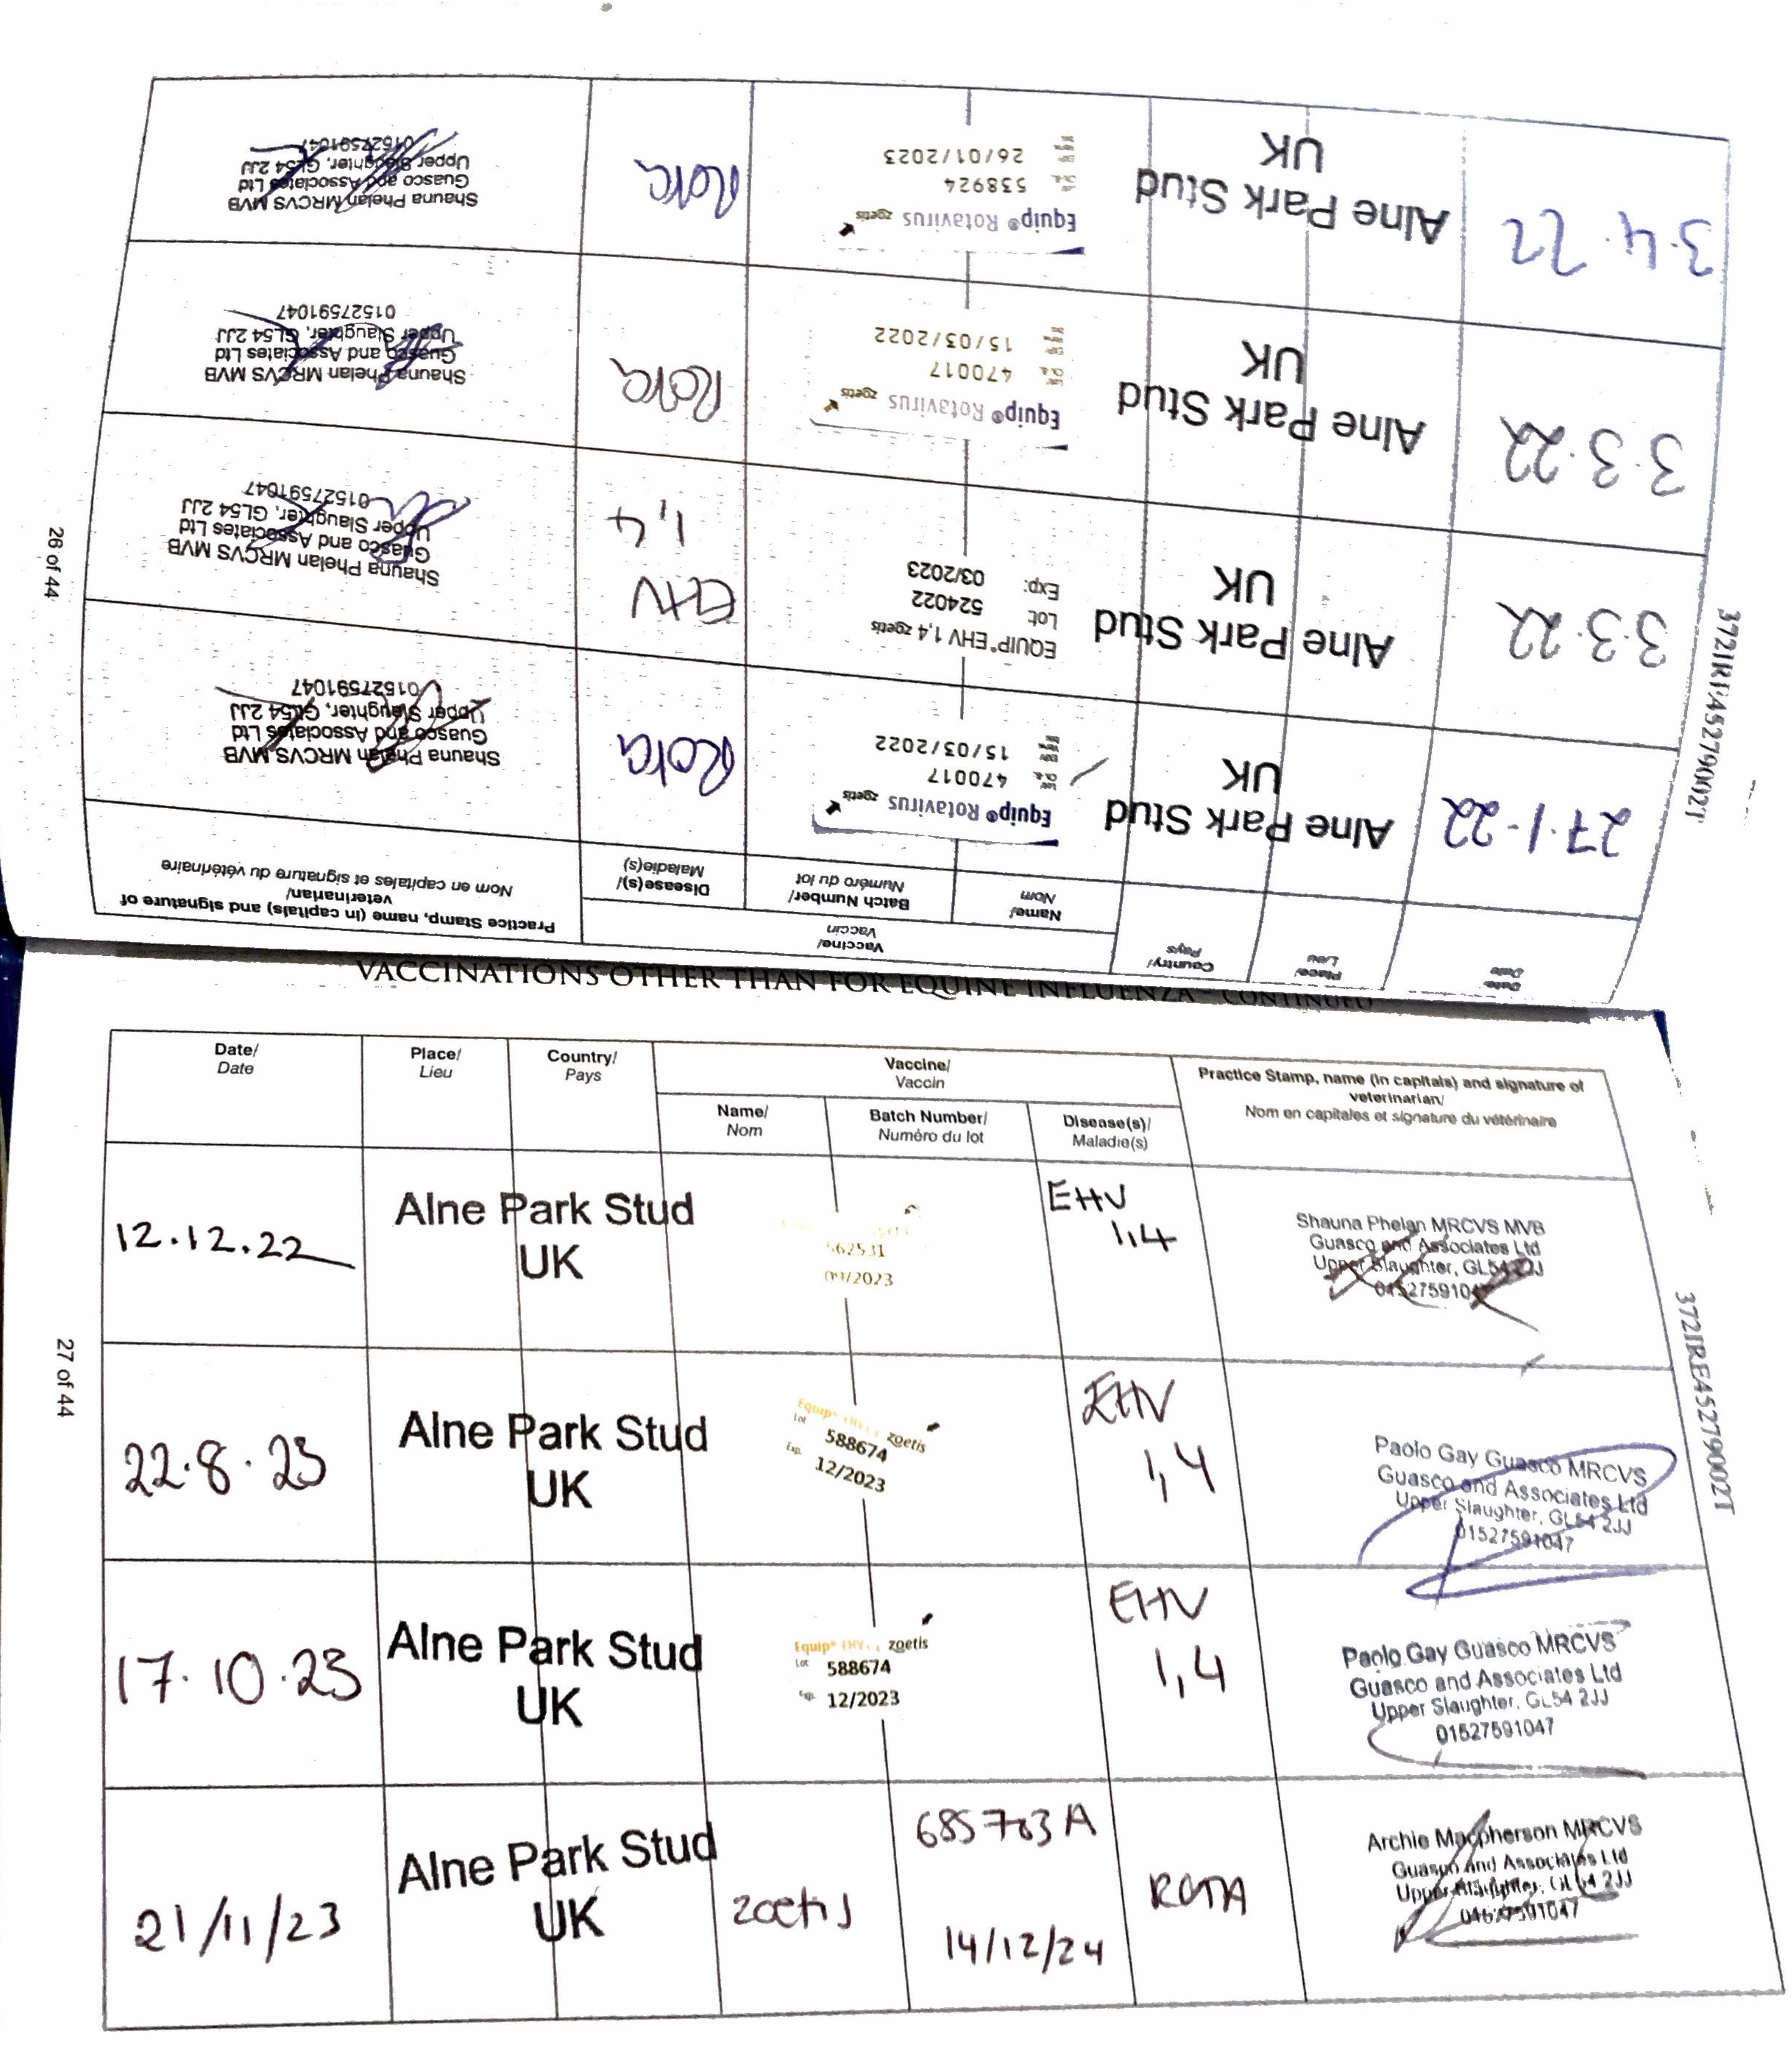 Date/
Date
Place/
Lieu
Country/
Pays
Vaccine/
Vaccin
Name/
Nom
Batch Number/
Numéro du lot
Disease(s)/
Maladie(s)
Practice Stamp, name (in capitals) and signature of
veterinarian/
Nom en capitales et signature du vétérinaire
27.1.22
Alne Park Stud
UK
Equip® Rotavirus zoetis
470017
15/03/2022
Rota
Shauna Phelan MRCVS MVB
Guasco and Associates Ltd
Upper Slaughter, GL54 2JJ
01527591047
3.3.22
Alne Park Stud
UK
EQUIP® EHV 1,4 zoetis
Lot: 524022
Exp: 03/2023
EHV
1,4
Shauna Phelan MRCVS MVB
Guasco and Associates Ltd
Upper Slaughter, GL54 2JJ
01527591047
3.3.22
Alne Park Stud
UK
Equip® Rotavirus zoetis
470017
15/03/2022
Rota
Shauna Phelan MRCVS MVB
Guasco and Associates Ltd
Upper Slaughter, GL54 2JJ
01527591047
3.4.22
Alne Park Stud
UK
Equip® Rotavirus zoetis
538924
26/01/2023
Rota
Shauna Phelan MRCVS MVB
Guasco and Associates Ltd
Upper Slaughter, GL54 2JJ
01527591047
26 of 44
372IRE45279002T
VACCINATIONS OTHER THAN FOR EQUINE INFLUENZA - CONTINUED
Date/
Date
Place/
Lieu
Country/
Pays
Vaccine/
Vaccin
Name/
Nom
Batch Number/
Numéro du lot
Disease(s)/
Maladie(s)
Practice Stamp, name (in capitals) and signature of
veterinarian/
Nom en capitales et signature du vétérinaire
12.12.22
Alne Park Stud
UK
562531
09/2023
EHV
1,4
Shauna Phelan MRCVS MVB
Guasco and Associates Ltd
Upper Slaughter, GL54 2JJ
01527591047
22.8.23
Alne Park Stud
UK
Equip® EHV 1,4 zoetis
Lot 588674
Exp. 12/2023
EHV
1,4
Paolo Gay Guasco MRCVS
Guasco and Associates Ltd
Upper Slaughter, GL54 2JJ
01527591047
17.10.23
Alne Park Stud
UK
Equip® EHV 1,4 zoetis
Lot 588674
Exp. 12/2023
EHV
1,4
Paolo Gay Guasco MRCVS
Guasco and Associates Ltd
Upper Slaughter, GL54 2JJ
01527591047
21/11/23
Alne Park Stud
UK
zoetis
685703A
14/12/24
ROTA
Archie Macpherson MRCVS
Guasco and Associates Ltd
Upper Slaughter, GL54 2JJ
01527591047
27 of 44
372IRE45279002T